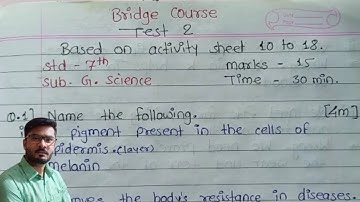 Bridge Course
Test 2
Based on activity sheet 10 to 18.
std - 7th marks - 15
sub. G. science Time - 30 min.
Q.1] Name the following. [4m]
pigment present in the cells of
epidermis. (layer)
melanin
the body's resistance in diseases.